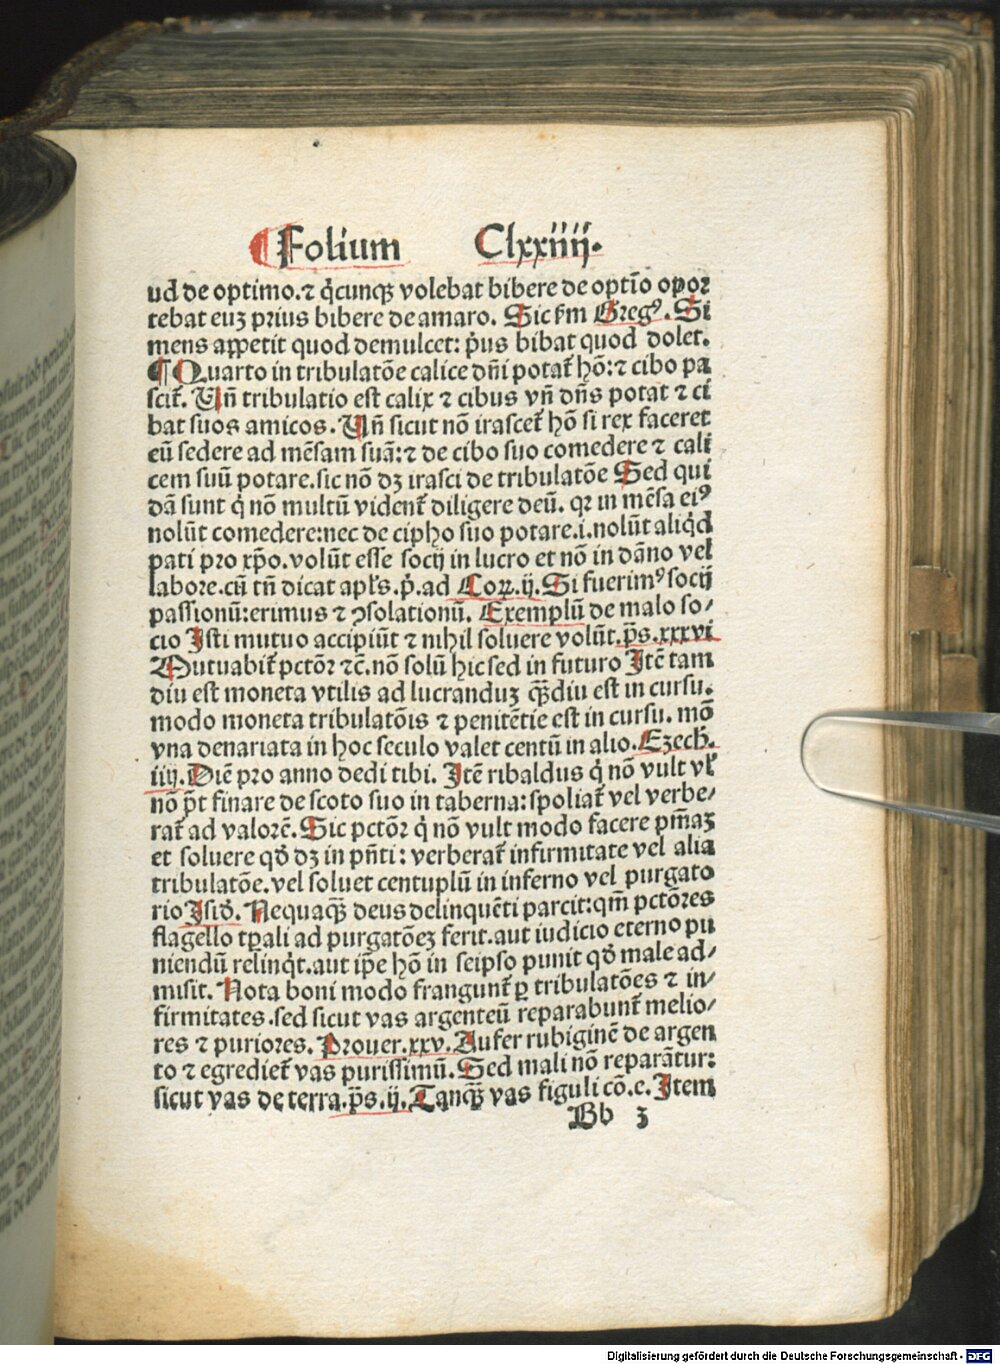 ¶ Folium Clxxiiij.
ud de optimo.⁊ q̇cunqꝫ volebat bibere de optĩo opor
tebat euꝫ prius bibere de amaro. Sic ẜm Gregꝰ. Si
mens appetit quod demulcet: p̓us bibat quod dolet.
¶ Quarto in tribulatõe calice dñi potat᷑ hõ:⁊ cibo pa
scit᷑. Uñ tribulatio est calix ⁊ cibus vñ dñs potat ⁊ ci
bat suos amicos. Uñ sicut nõ irascet᷑ hõ si rex faceret
eũ sedere ad mẽsam suã:⁊ de cibo suo comedere ⁊ cali
cem suũ potare.sic nõ dꝫ irasci de tribulatõe Sed qui
dã sunt q̇ nõ multũ vident᷑ diligere deũ. qꝛ in mẽsa eiꝰ
nolũt comedere:nec de cipho suo potare.i.nolũt aliq̇d
pati pro xp̃o.volũt esse socij in lucro et nõ in dãno vel
labore.cũ tñ dicat apl̃s.p̓.ad Coꝝ.ij.Si fuerimꝰ socij
passionũ:erimus ⁊ ꝯsolationũ. Exemplũ de malo so/
cio Isti mutuo accipiũt ⁊ nihil soluere volũt.p̃s.xxxvi
Mutuabit᷑ pctõr ⁊c̃.nõ solũ hic sed in futuro Itẽ tam
diu est moneta vtilis ad lucranduꝫ qꝫ̃diu est in cursu.
modo moneta tribulatõis ⁊ penitẽtie est in cursu. mõ
vna denariata in hoc seculo valet centũ in alio.Ezech̃.
iiij.Diẽ pro anno dedi tibi. Itẽ ribaldus q̇ nõ vult vl̃
nõ p̃t finare de scoto suo in taberna:spoliat᷑ vel verbe/
rat᷑ ad valorẽ.Sic pctõr q̇ nõ vult modo facere pñiaꝫ
et soluere qđ dꝫ in pñti: verberat᷑ infirmitate vel alia
tribulatõe.vel soluet centuplũ in inferno vel purgato
rio Isiđ. Nequaqꝫ̃ deus delinquẽti parcit:qm̃ pctõres
flagello tꝑali ad purgatõeꝫ ferit.aut iudicio eterno pu
niendũ relinq̇t.aut ip̃e hõ in seipso punit qđ male ad/
misit. Nota boni modo frangunt᷑ ꝑ tribulatões ⁊ in/
firmitates.sed sicut vas argenteũ reparabunt᷑ melio/
res ⁊ puriores. Prouer.xxv.Aufer rubiginẽ de argen
to ⁊ egrediet᷑ vas purissimũ.Sed mali nõ reparãtur:
sicut vas de terra.p̃s.ij.Tanqꝫ̃ vas figuli cõ.e.Item
Bb 3
Digitalisierung gefördert durch die Deutsche Forschungsgemeinschaft - DFG